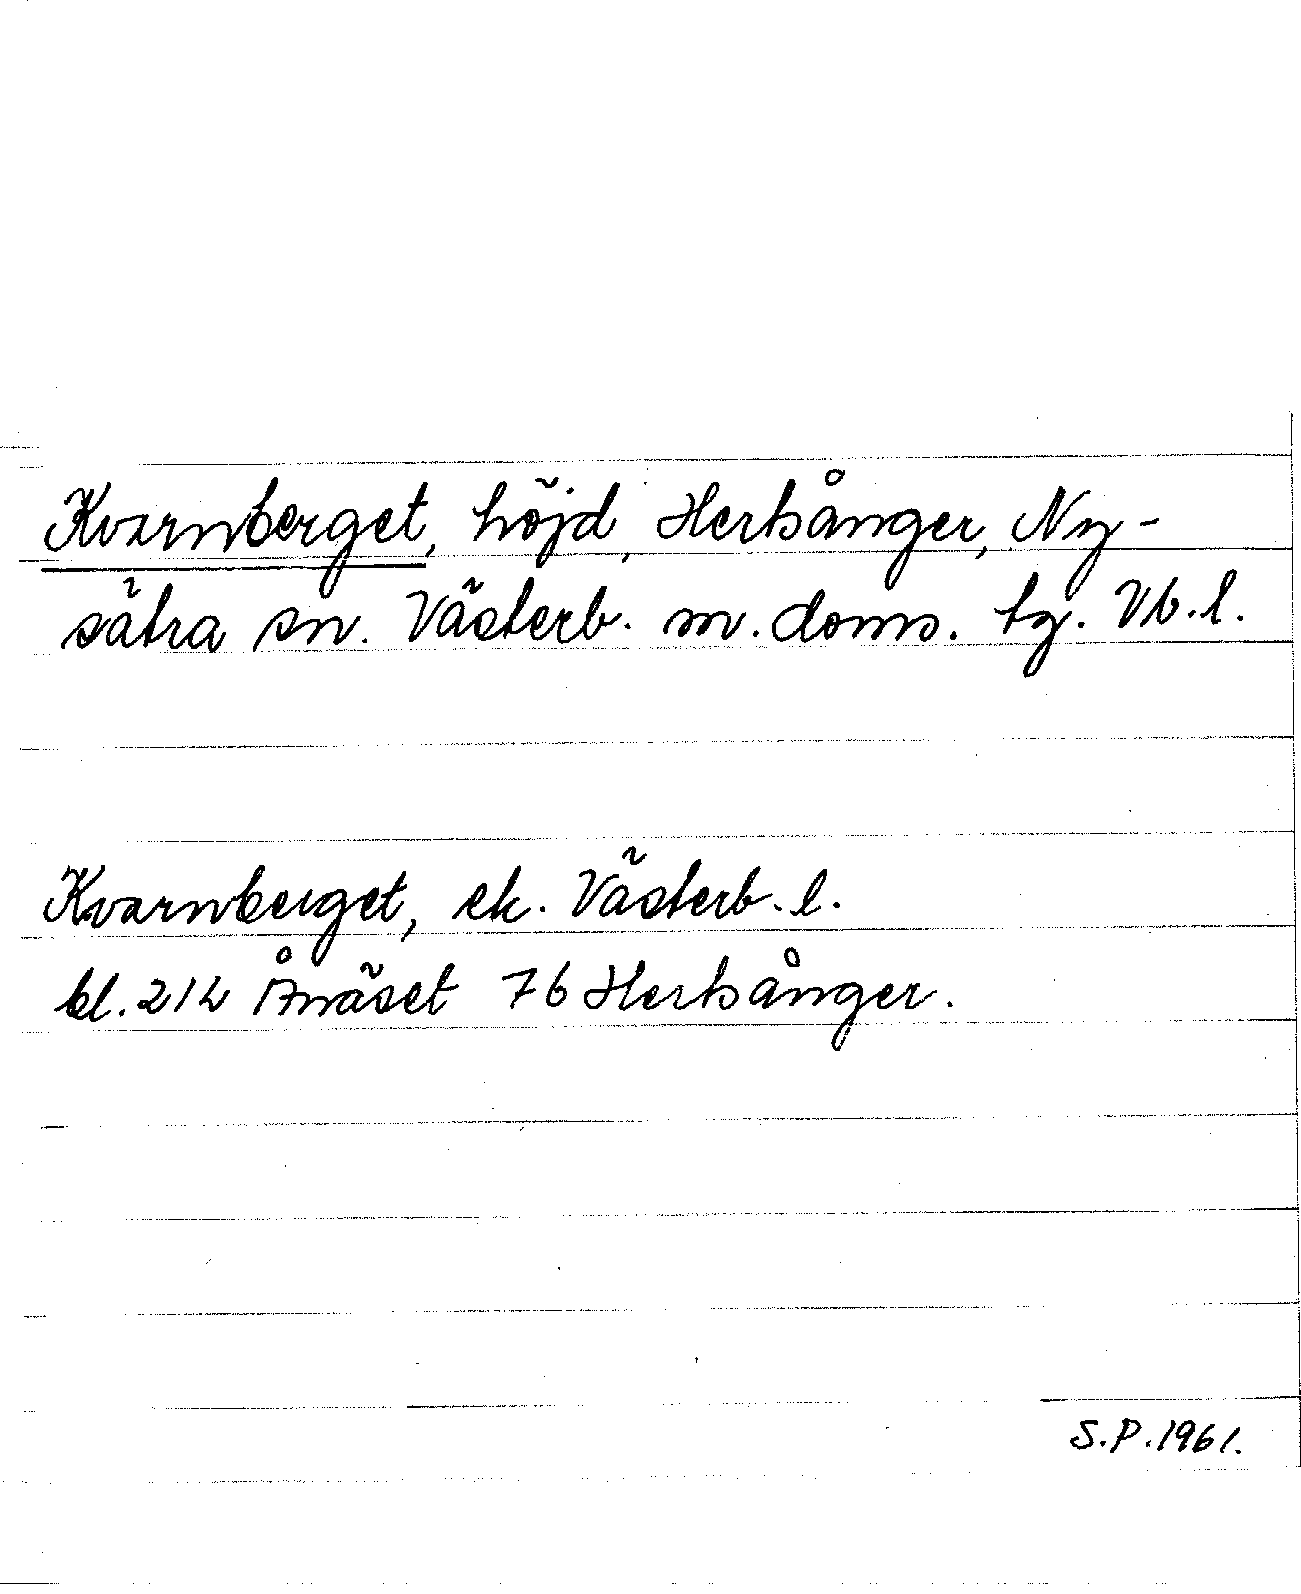 Kvarnberget, höjd, Hertsånger, Ny-
sätra sn. Västerb. m. doms. tg. Vb. l.
Kvarnberget, ek. Västerb. l.
bl. 212 Ånäset 7b Hertsånger.
S.P. 1961.